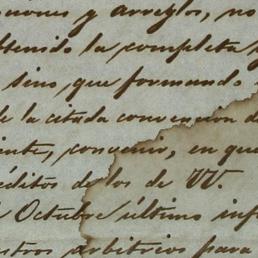 ciones y arreglos, no
btenido la completa y
sino que formando
de la citada convencion d
iente, convenir, en que
réditos de los de VV.
Octubre último inf
stros arbitrios para